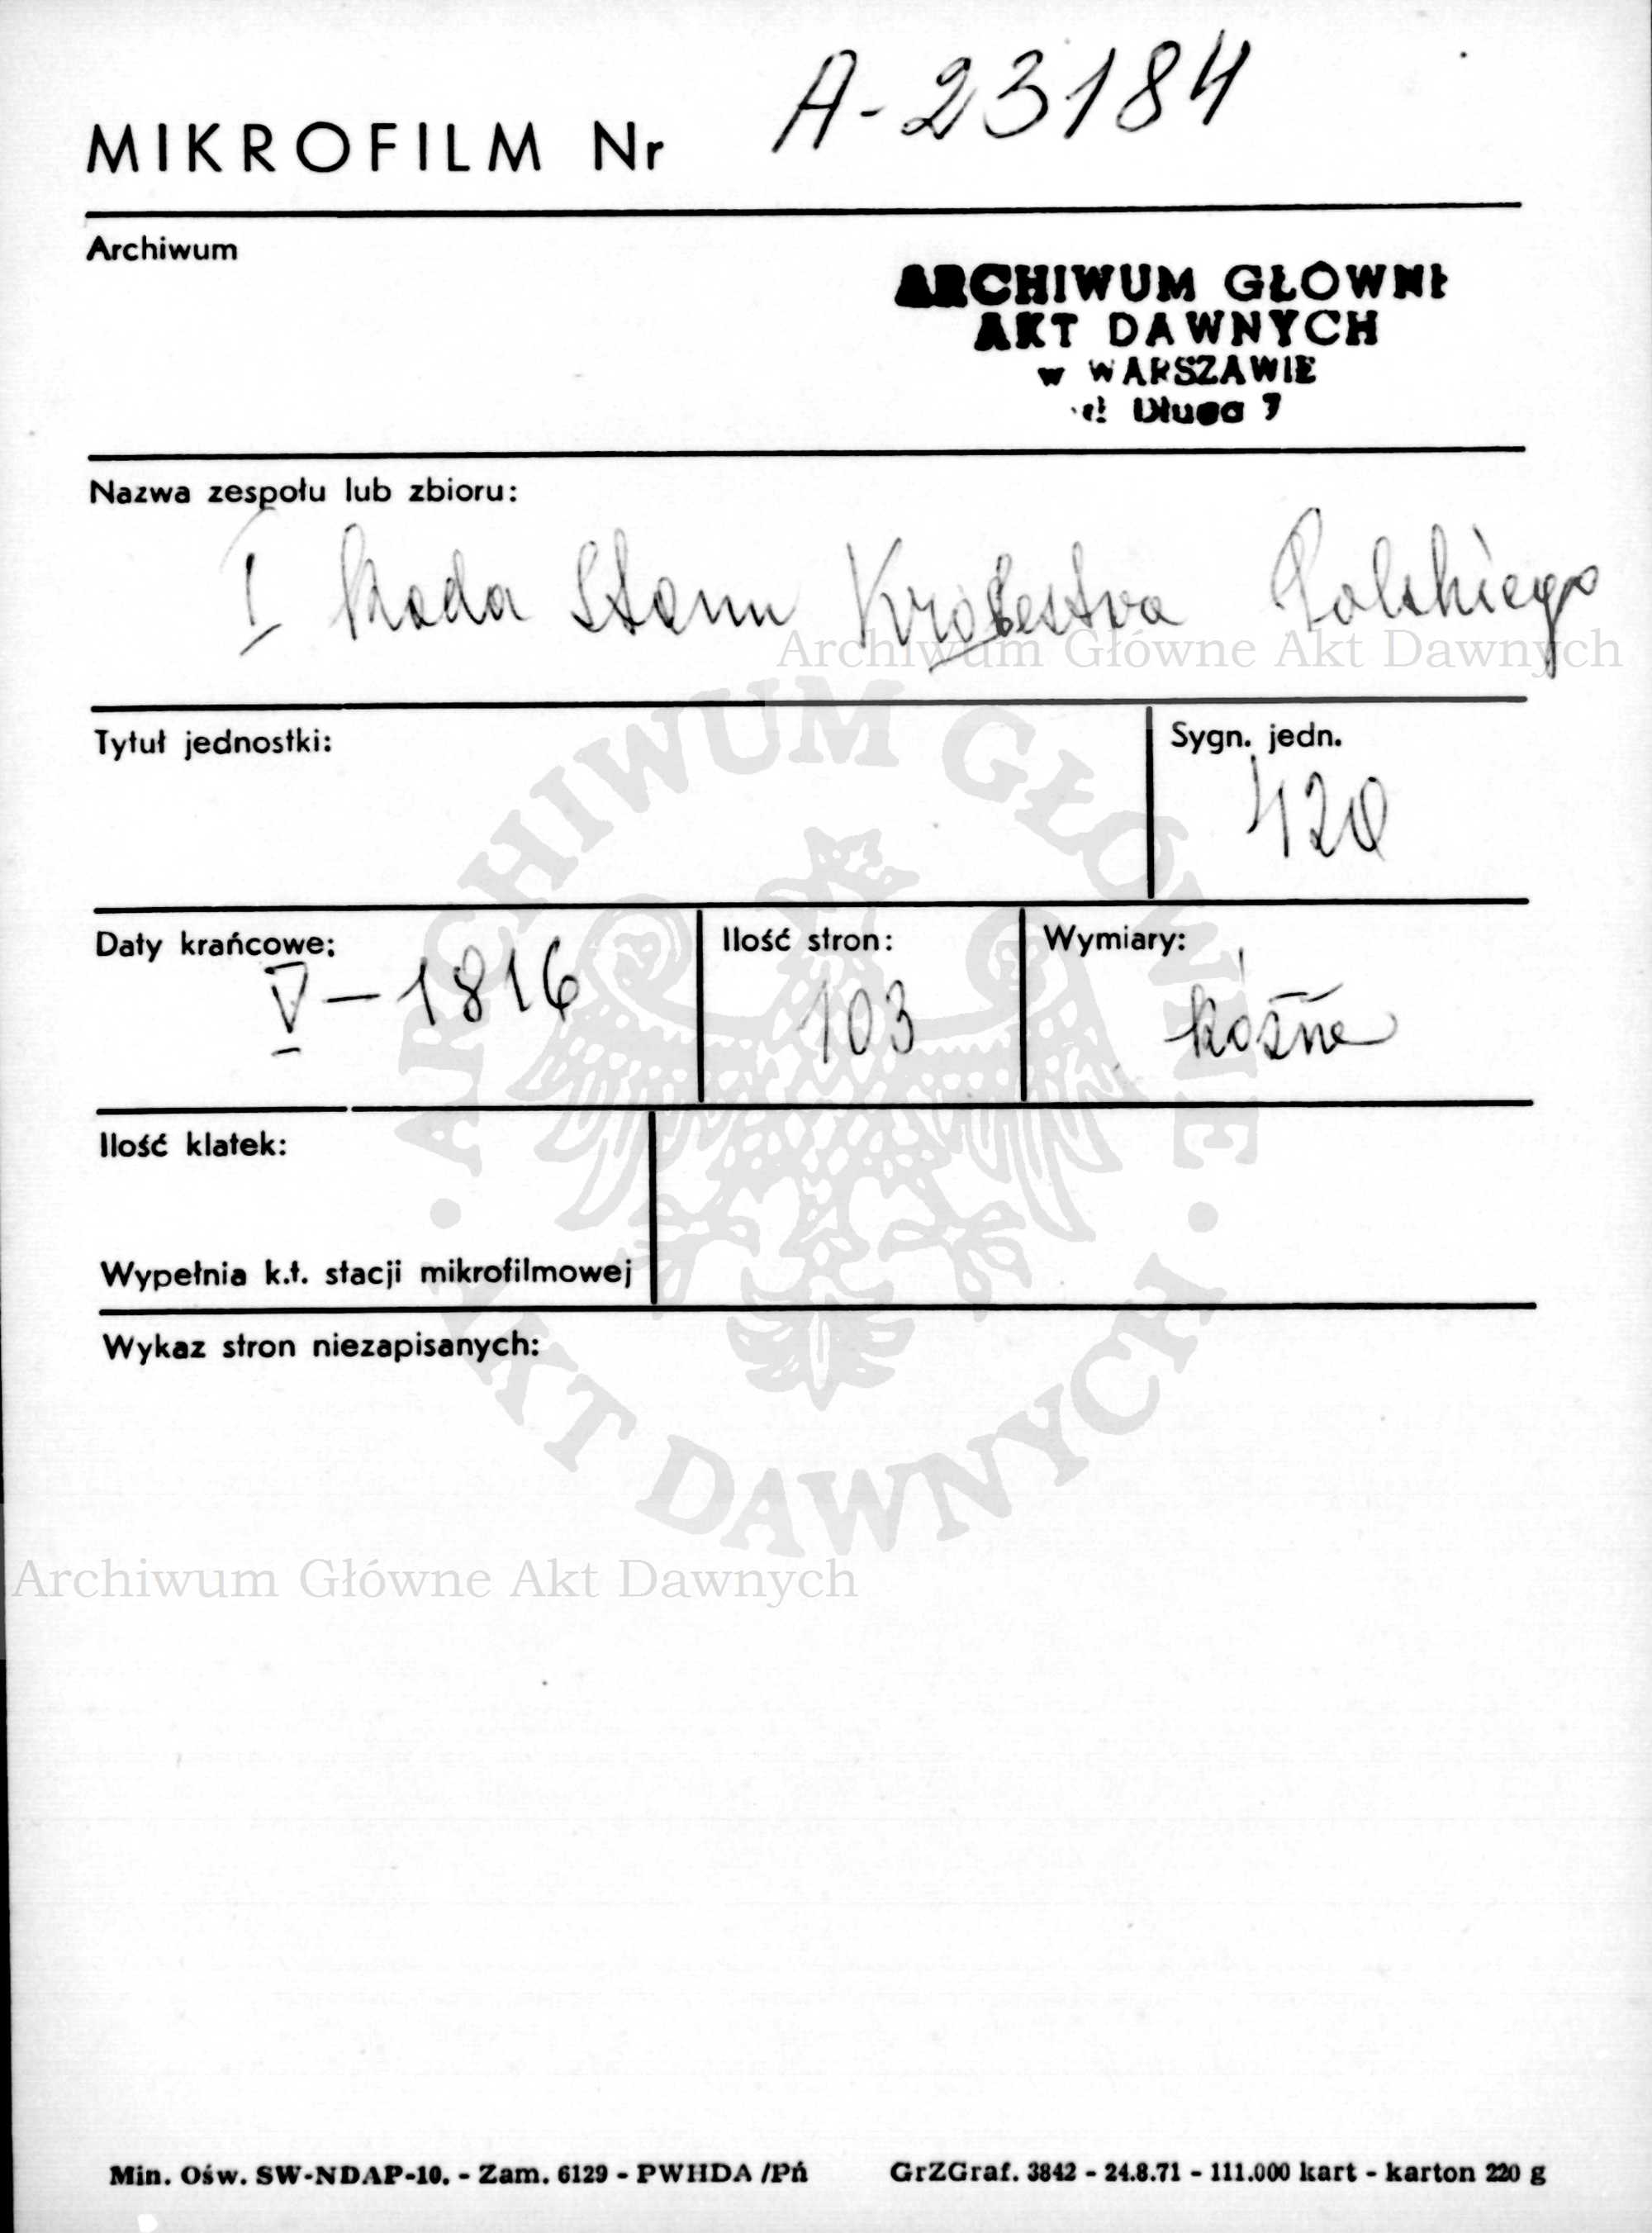 MIKROFILM Nr A-23184
Archiwum
ARCHIWUM GŁÓWNE
AKT DAWNYCH
w WARSZAWIE
ul Długa 7
Nazwa zespołu lub zbioru:
I Rada Stanu Królestwa Polskiego
Archiwum Główne Akt Dawnych
Tytuł jednostki:
Sygn. jedn.
420
Daty krańcowe:
V - 1816
Ilość stron:
103
Wymiary:
różne
ARCHIWUM GŁÓWNE
AKT DAWNYCH
Ilość klatek:
Wypełnia k.t. stacji mikrofilmowej
Wykaz stron niezapisanych:
Archiwum Główne Akt Dawnych
Min. Ośw. SW-NDAP-10. - Zam. 6129 - PWHDA /Pń
GrZGraf. 3842 - 24.8.71 - 111.000 kart - karton 220 g